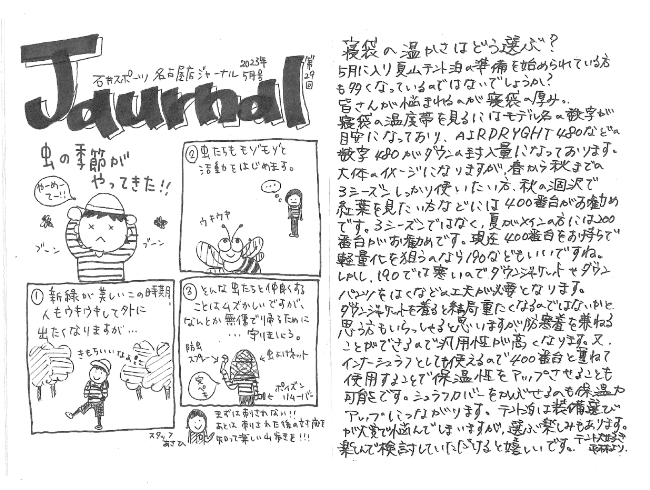 Journal
石井スポーツ 名古屋店ジャーナル
2023年
5月号
第29回
虫の季節が
やってきた!!
やーめーてー!!
ブーン
ブーン
① 新緑が美しいこの時期、
人もウキウキして外に
出たくなりますが…
きもちいいなぁ
② 虫たちもモゾモゾと
活動をはじめます。
…
ウキウキ
③ そんな虫たちと仲良くする
ことはムズかしいですが、
なんとか無傷で帰るために
…守りましょう。
防虫
スプレー
虫よけネット
完ペキ
ポイズン
リムーバー
まずは刺されない!!
あとは刺された後の対策を
知って楽しい山歩きを!!!
スタッフ
寝袋の温かさはどう選ぶ?
5月に入り夏山テント泊の準備を始められている方
も多くなっているのではないでしょうか?
皆さんが悩まれるのが寝袋の厚み。
寝袋の温度帯を見るにはモデル名の数字が
目安になっており、AIRDRYGHT480などの
数字480がダウンの封入量になっております。
大体のイメージになりますが、春から秋までの
3シーズンしっかり使いたい方、秋の涸沢で
紅葉を見たい方などには400番台がお勧め
です。3シーズンではなく、夏がメインの方には200
番台がお勧めです。現在400番台をお持ちで
軽量化を狙うのなら190などもいいですね。
しかし、190では寒いのでダウンジャケットやダウン
パンツをはくなどの工夫が必要となります。
ダウンジャケットを着ると結局重たくなるのではないかと
思う方もいらっしゃると思いますが防寒着を兼ねる
ことができるので汎用性が高くなります。又、
インナーシュラフとしても使えるので400番台と重ねて
使用することで保温性をアップさせることも
可能です。シュラフカバーをかぶせるのも保温力
アップにつながります。テント泊は装備選び
が大変で悩んでしまいますが、選ぶ楽しみもあります。
楽しんで検討していただけると嬉しいです。
テント大好き